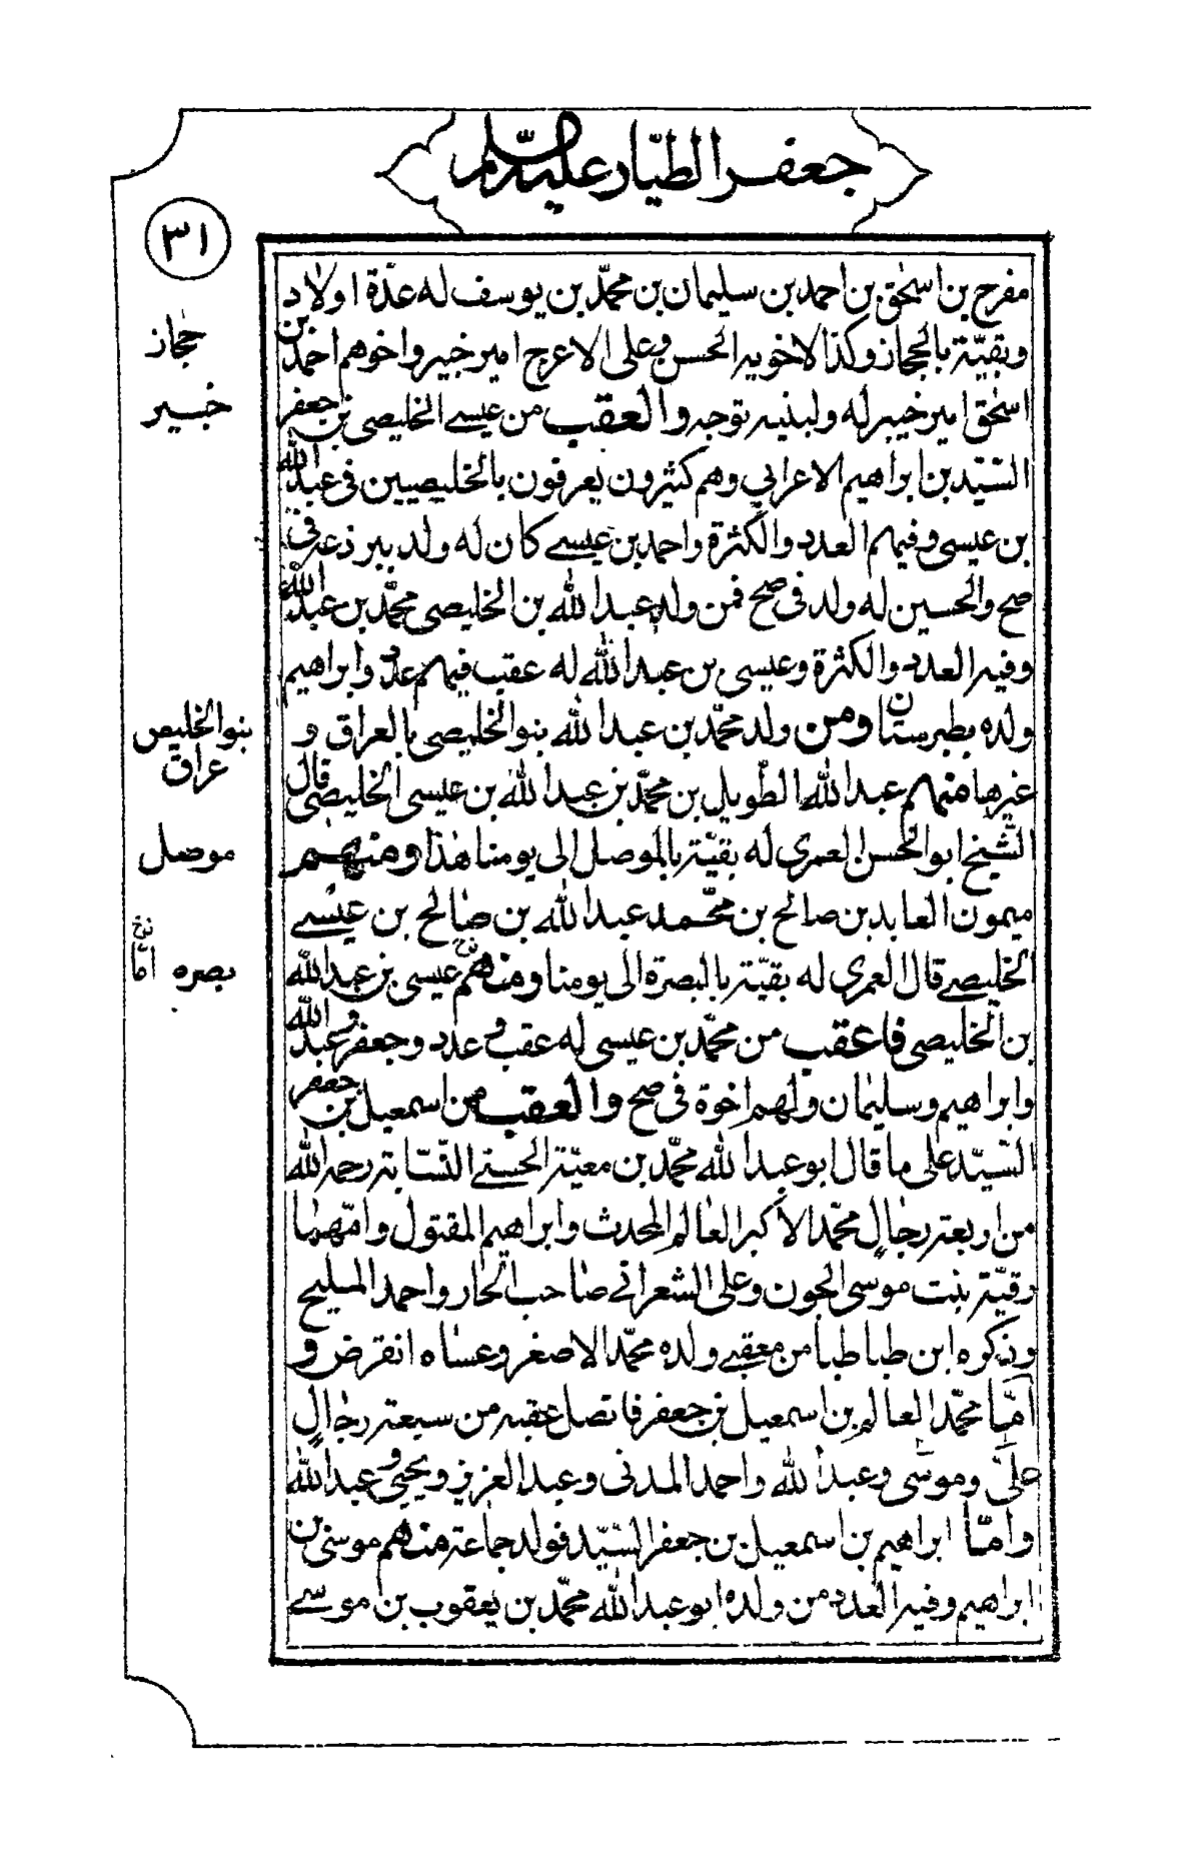 جعفر الطيّار عليه السّلام
٣١
مفرح بن اسحٰق بن احمد بن سليمان بن محمّد بن يوسف له عدّة اولاد
وبقيّة بالحجاز وكذا لاخويه الحسن وعلى الاعرج امير خيبر واخوهم احمد بن
اسحٰق امير خيبر له ولبنيه توجه والعقب من عيسى الخليصى بن جعفر
السّيّد بن ابراهيم الاعرابي وهم كثيرون يعرفون بالخليصيين فى عبد الله
بن عيسى وفيهم العدد والكثرة واحمد بن عيسى كان له ولد ببرذعة فى
صح والحسين له ولد فى صح فمن ولد عبد الله بن الخليصى محمّد بن عبد الله
وفيه العدد والكثرة وعيسى بن عبد الله له عقب فيهم عدد وابراهيم
ولده بطبرستان ومن ولد محمّد بن عبد الله بنو الخليصى بالعراق و
غيرها منهم عبد الله الطّويل بن محمّد بن عبد الله بن عيسى الخليصى قال
الشّيخ ابو الحسن العمرى له بقيّة بالموصل الى يومنا هذا ومنهم
ميمون العابد بن صالح بن محمّد عبد الله بن صالح بن عيسى
الخليصى قال العمرى له بقيّة بالبصرة الى يومنا ومنهم عيسى بن عبد الله
بن الخليصى فاعقب من محمّد بن عيسى له عقب وعدد وجعفر وعبد الله
وابراهيم وسليمان ولهم اخوة فى صح والعقب من اسمعيل بن جعفر
السّيّد على ما قال ابو عبد الله محمّد بن معيّة الحسنى النّسّابة رحمه الله
من اربعة رجالٍ محمّد الاكبر العالم المحدث وابراهيم المقتول وامّهما
رقيّة بنت موسى الجون وعلى الشعرانى صاحب الجار واحمد المليح
وذكره ابن طباطبا من معقبى ولده محمّد الاصغر وعساه انقرض و
امّا محمّد العالم بن اسمعيل بن جعفر فاتصل عقبه من سبعة رجالٍ
علىّ وموسى وعبد الله واحمد المدنى وعبد العزيز ويحيى وعبد الله
وامّا ابراهيم بن اسمعيل بن جعفر السّيّد فولد جماعة منهم موسى بن
ابراهيم وفيه العدد من ولده ابو عبد الله محمّد بن يعقوب بن موسى
حجاز
خيبر
بنو الخليص
عراق
موصل
بصره
امّا نخ